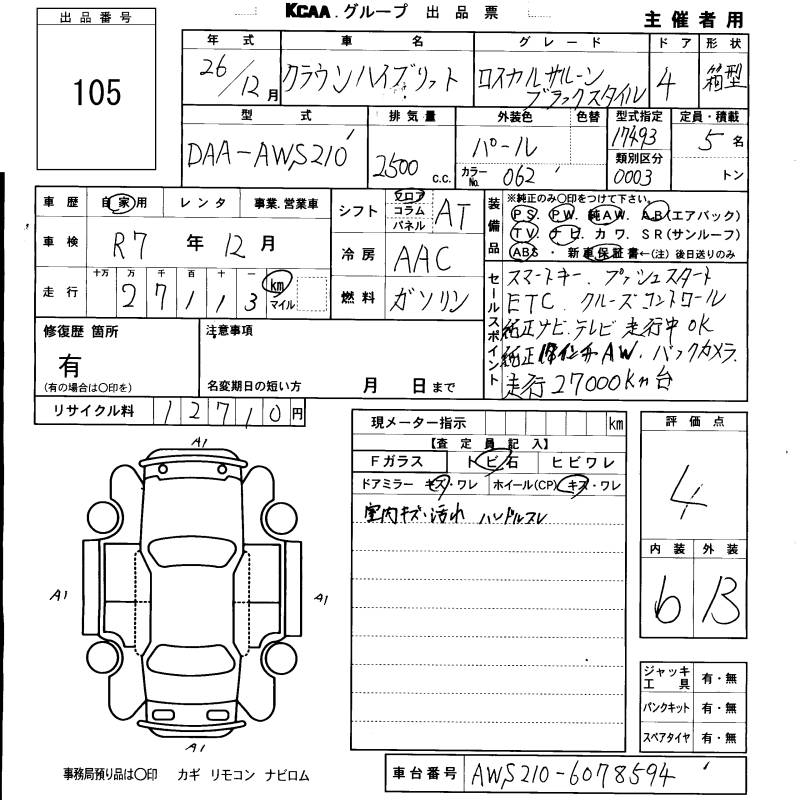 KCAA グループ 出品票
主催者用
出品番号
105
年式 車名 グレード ドア 形状
26/12月 クラウンハイブリット ロイヤルサルーン ブラックスタイル 4 箱型
型式 排気量 外装色 色替 型式指定 定員・積載
DAA-AWS210 2500 c.c. パール 17493 5名
カラーNo. 062 類別区分 0003 トン
車歴 自家用 レンタ 事業.営業車
車検 R7年12月
走行 十万 万 千 百 十 一 km マイル
27113
シフト フロア コラム パネル AT
冷房 AAC
燃料 ガソリン
装備品 ※純正のみ〇印をつけて下さい。
PS. PW. 純AW. AB(エアバック)
TV. ナビ. カワ. SR(サンルーフ)
ABS・新車保証書←(注) 後日送りのみ
セールスポイント
スマートキー. プッシュスタート
ETC. クルーズコントロール
純正ナビ.テレビ 走行中OK
純正18インチAW. バックカメラ.
走行27000Km台
修復歴 箇所
有
(有の場合は〇印を)
注意事項
名変期日の短い方 月 日まで
リサイクル料 12710円
現メーター指示 km
【査定員記入】
Fガラス トビ石 ヒビワレ
ドアミラー キズ・ワレ ホイール(CP) キズ・ワレ
室内キズ・汚れ ハンドルスレ
評価点
4
内装 外装
6 B
A1
A1
A1
A1
ジャッキ工具 有・無
パンクキット 有・無
スペアタイヤ 有・無
事務局預り品は〇印 カギ リモコン ナビロム
車台番号 AWS210-6078594